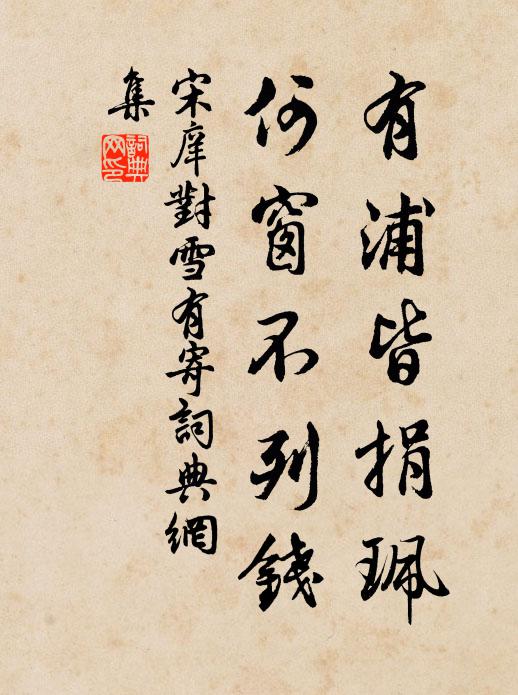 有浦皆捐珮
何窗不列錢
宋庠對雪有寄詞典網
集
詞典
网印